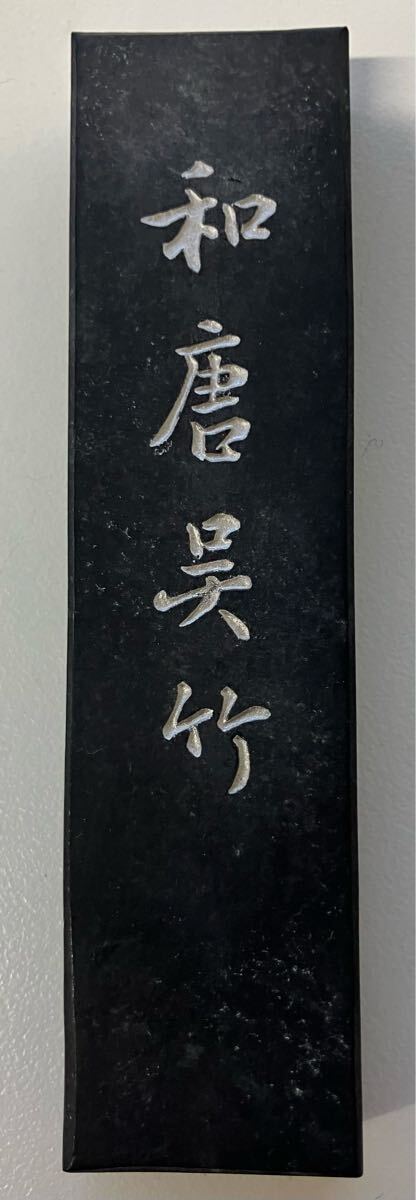 和唐呉竹